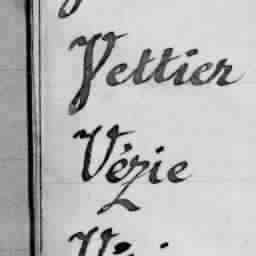 Vettier
Vézie